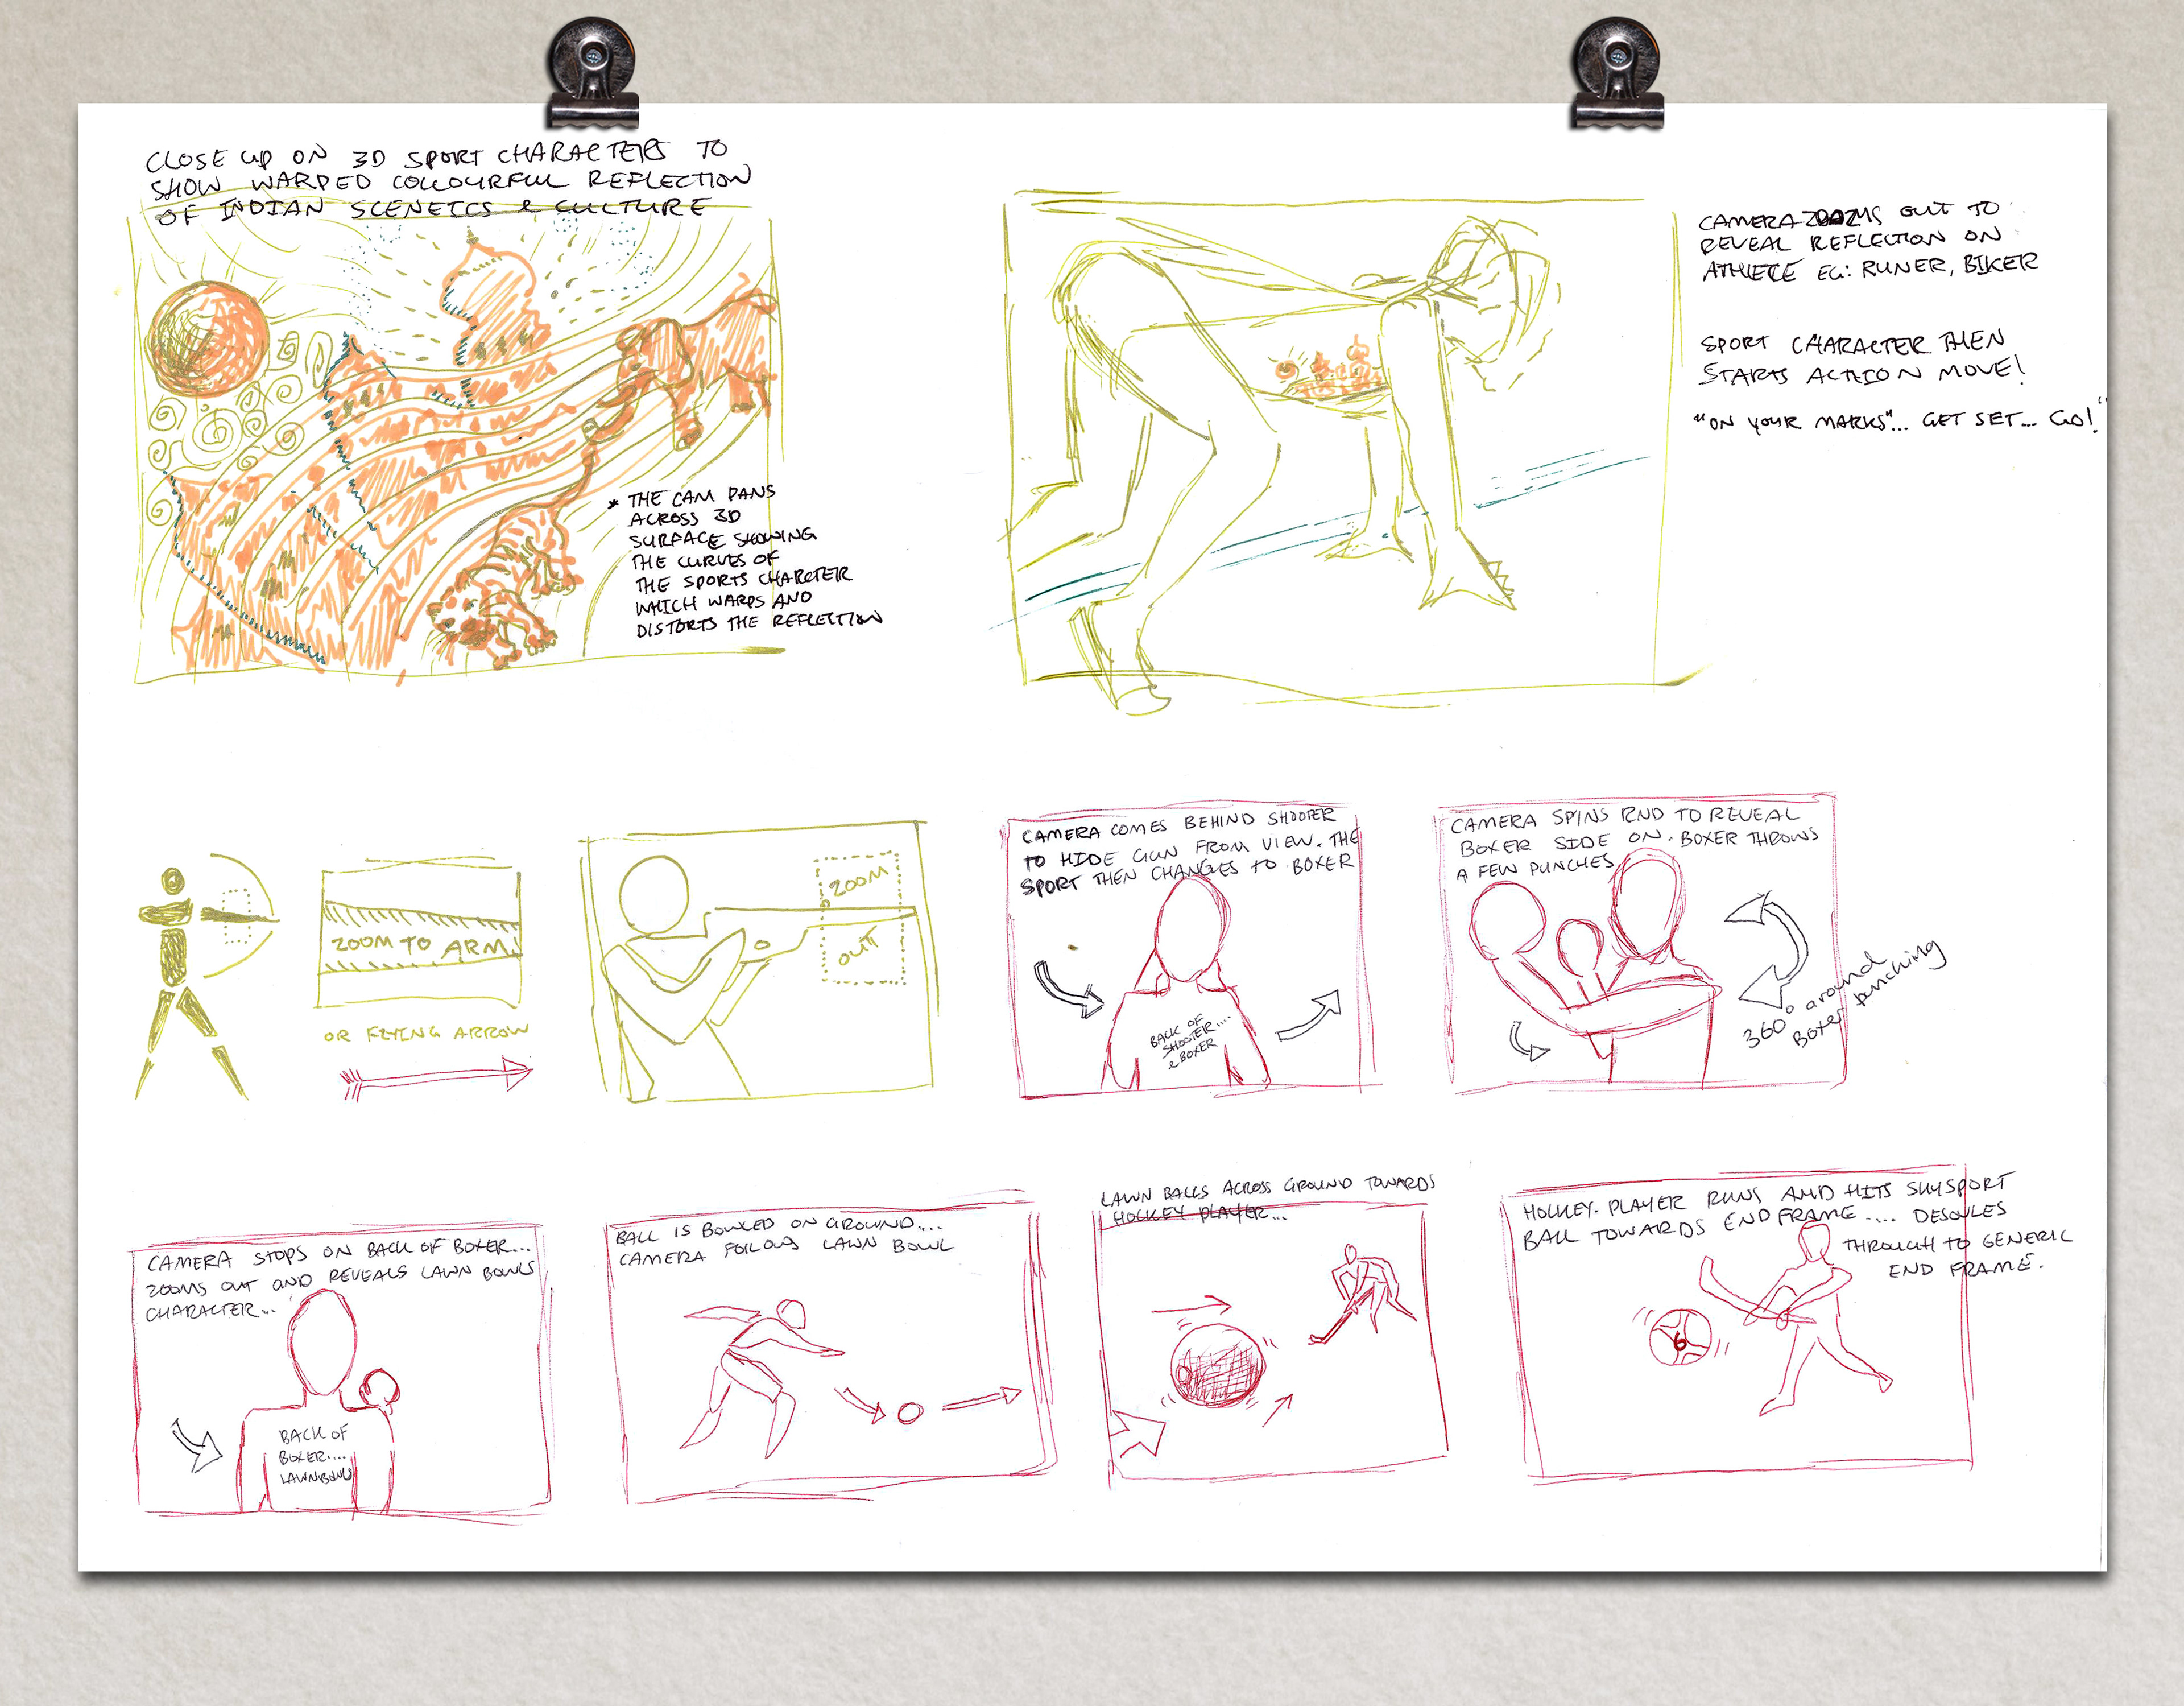 CLOSE UP ON 3D SPORT CHARACTERS TO
SHOW WARPED COLLOURFUL REFLECTION
OF INDIAN SCENEICS & CULTURE
* THE CAM PANS
ACROSS 3D
SURFACE SHOWING
THE CURVES OF
THE SPORTS CHARCTER
WHICH WARPS AND
DISTORTS THE REFLECTION
CAMERA ZOOMS OUT TO
REVEAL REFLECTION ON
ATHLETE EG: RUNER, BIKER
SPORT CHARACTER THEN
STARTS ACTION MOVE!
"ON YOUR MARKS"... GET SET... GO!"
ZOOM TO ARM
OR FLYING ARROW
ZOOM
OUT
CAMERA COMES BEHIND SHOOTER
TO HIDE GUN FROM VIEW. THE
SPORT THEN CHANGES TO BOXER
BACK OF
SHOOTER....
& BOXER
CAMERA SPINS RND TO REVEAL
BOXER SIDE ON. BOXER THROWS
A FEW PUNCHES
360° around
Boxer punching
CAMERA STOPS ON BACK OF BOXER...
ZOOMS OUT AND REVEALS LAWN BOWLS
CHARACTER...
BACK OF
BOXER....
LAWNBOWLS
BALL IS BOWLED ON GROUND...
CAMERA FOLLOWS LAWN BOWL
LAWN BALLS ACROSS GROUND TOWARDS
HOCKEY PLAYER...
HOCKEY. PLAYER RUNS AND HITS SKYSPORT
BALL TOWARDS END FRAME .... DESOLVES
THROUGH TO GENERIC
END FRAME.
6